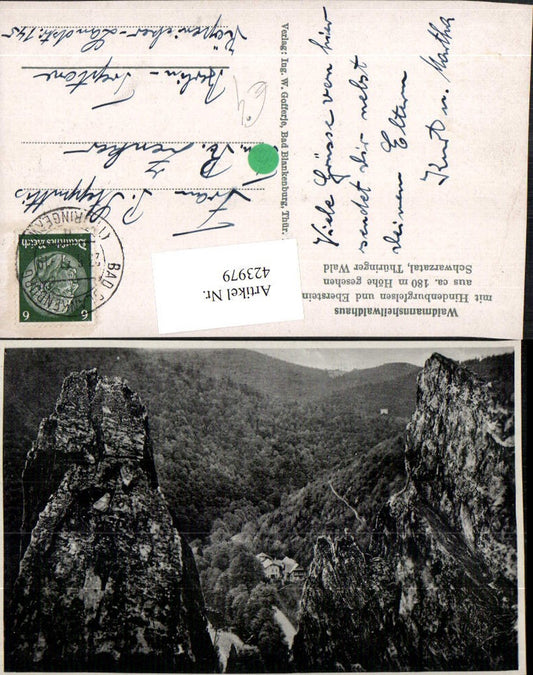 Waldmannsheilwaldhaus
mit Hindenburgfelsen und Eberstein
aus ca. 180 m Höhe gesehen
Schwarzatal, Thüringer Wald
Viele Grüsse von hier
sendet dir nebst
deinen Eltern
Kurt u. Martha
Verlag: Ing. W. Gofferje, Bad Blankenburg, Thür.
Frau
Berlin - Treptow
Köpenicker-Landstr. 145
Deutsches Reich
6 6
BAD BLANKENBURG
(THÜRINGERW)
Artikel Nr.
423979